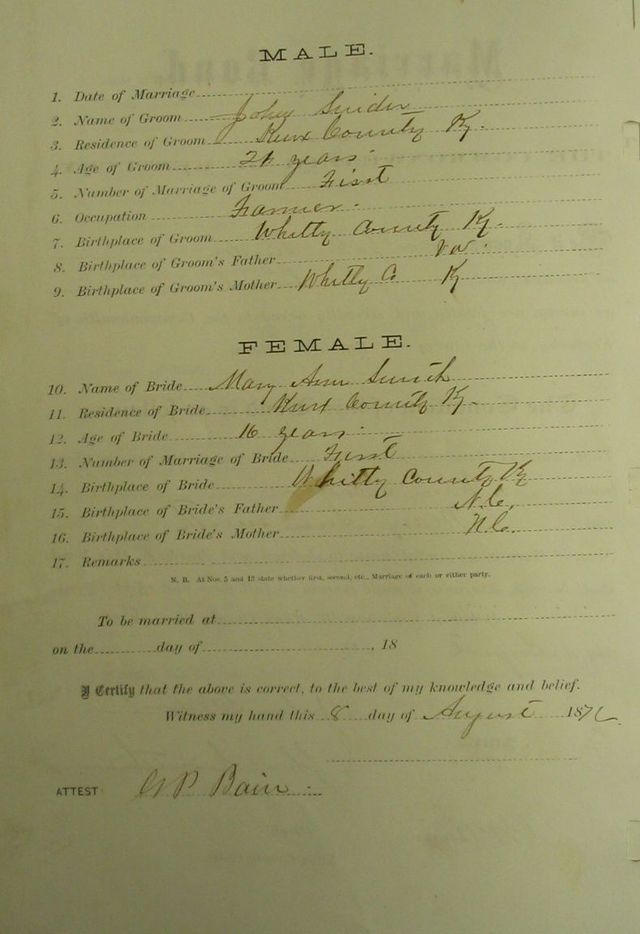 MALE.
1. Date of Marriage
2. Name of Groom John Snider
3. Residence of Groom Knox County Ky.
4. Age of Groom 21 years.
5. Number of Marriage of Groom First
6. Occupation Farmer.
7. Birthplace of Groom Whitly County Ky.
8. Birthplace of Groom's Father Va.
9. Birthplace of Groom's Mother Whitly C. Ky
FEMALE.
10. Name of Bride Mary Ann Smith
11. Residence of Bride Knox County Ky.
12. Age of Bride 16 years.
13. Number of Marriage of Bride First
14. Birthplace of Bride Whitly County Ky
15. Birthplace of Bride's Father N.C.
16. Birthplace of Bride's Mother N.C.
17. Remarks
N. B. At Nos. 5 and 13 state whether first, second, etc., Marriage of each or either party.
To be married at
on the day of , 18
I Certify that the above is correct, to the best of my knowledge and belief.
Witness my hand this 8 day of August 187
ATTEST P Bain